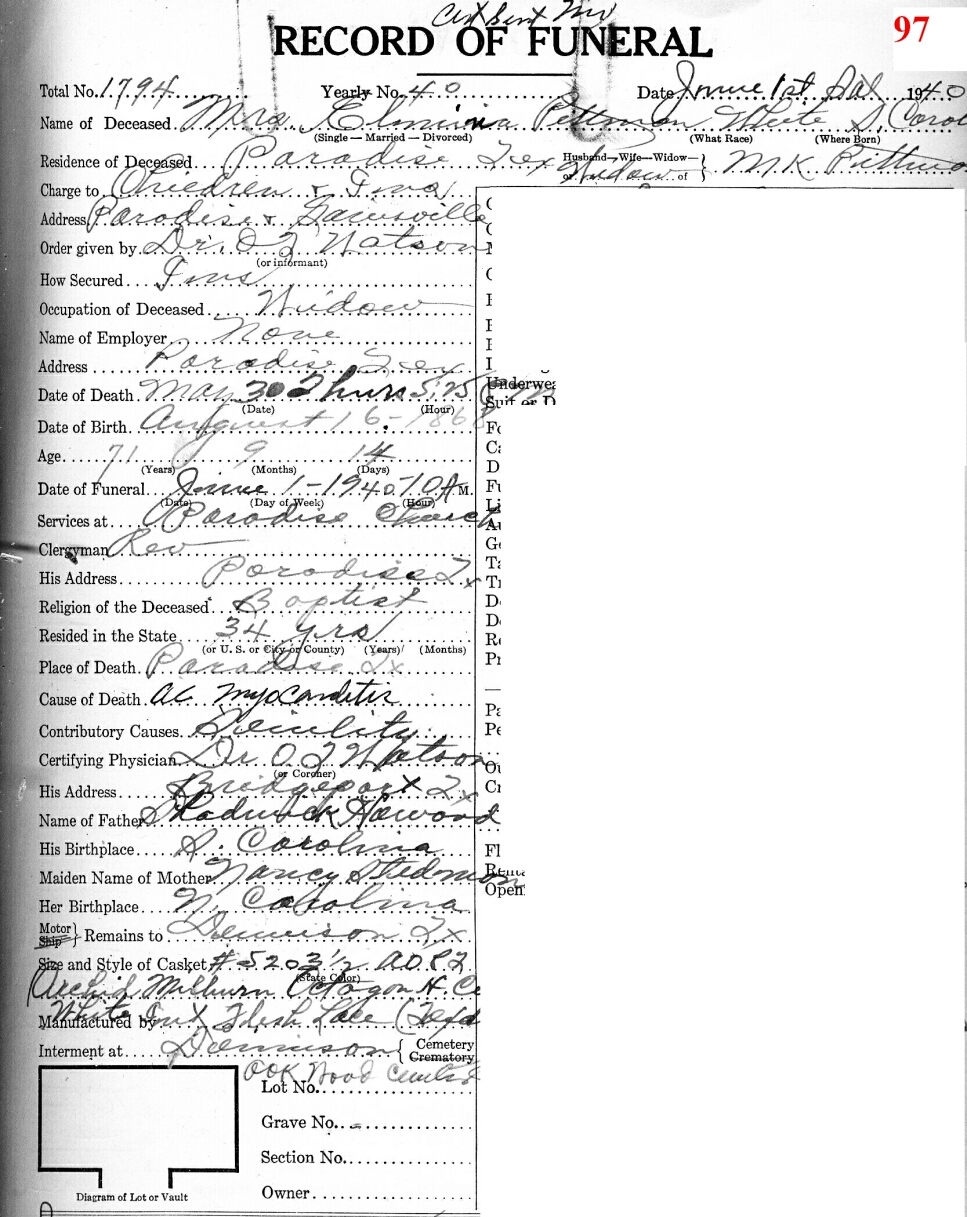 97
RECORD OF FUNERAL
Total No. 1794 Yearly No. 40 Date June 1st Sat 1940
Name of Deceased Mrs. Elmina Pittman White S. Carol
(Single — Married — Divorced) (What Race) (Where Born)
Residence of Deceased Paradise Tex Husband—Wife—Widow— or Widow of } M K Pittman
Charge to Children & Ins
Address Paradise & Gainsville
Order given by Dr. O J Watson
(or informant)
How Secured Ins
Occupation of Deceased Widow
Name of Employer None
Address Paradise Tex
Date of Death May 30 Thurs 5:25 M
(Date) (Hour)
Date of Birth August 16- 1868
Age 71 9 14
(Years) (Months) (Days)
Date of Funeral June 1-1940 10 A M.
(Date) (Day of Week) (Hour)
Services at Paradise Church
Clergyman Rev
His Address Paradise Tx
Religion of the Deceased Baptist
Resided in the State 34 yrs
(or U. S. or City or County) (Years) (Months)
Place of Death Paradise Tx
Cause of Death ac myocarditis
Contributory Causes Seinlity
Certifying Physician Dr O J Watson
(or Coroner)
His Address Bridgeport Tx
Name of Father Shadwick Howood
His Birthplace S. Carolina
Maiden Name of Mother Nancy Stedman
Her Birthplace N. Carolina
Motor Ship } Remains to Dennison Tx
Size and Style of Casket #5203½
(State Color)
Orchid Milburn Octagon H. C
Manufactured by White Int Flesh Lace (Texa
Interment at Dennison { Cemetery Crematory
Ook Wood
Lot No.
Grave No.
Section No.
Owner
Diagram of Lot or Vault
Underwea
Suit or D